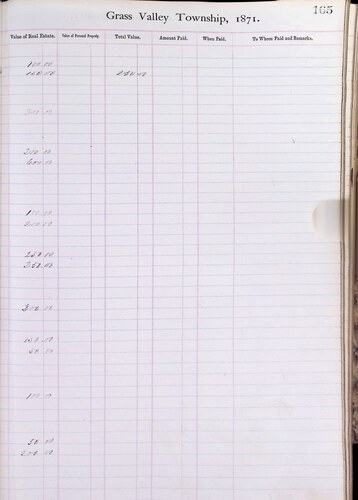 165
Grass Valley Township, 1871.
Value of Real Estate. Value of Personal Property. Total Value. Amount Paid. When Paid. To Whom Paid and Remarks.
100 00
300 00
300 00
600 00
100 00
250 00
350 00
300 00
50 00
100 00
50 00
200 00